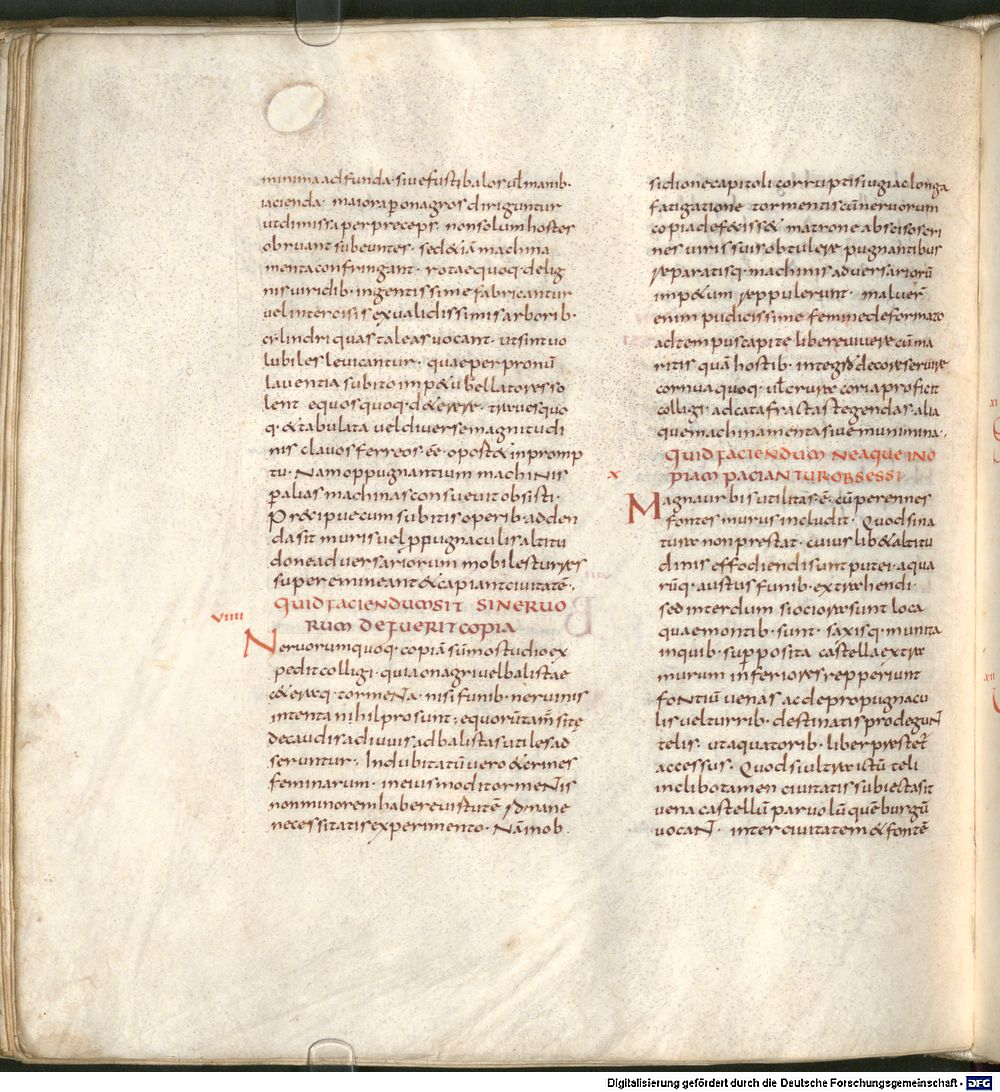 minima ad funda· sive fustibalos ul̄ manib·
iacienda· maiora p̱ onagros diriguntur
ut dimissi per preceps· non solum hostes
obruant subeuntes· sed &iā machina
menta confringant· rotae quoq· de lig
nis viridib· ingentissime fabricantur
vel intercisis ex validissimis arborib·
cylindri quas taleas vocant· ut sint vo
lubiles levicantur· quae per pronū
labentia subito imp&u bellatores so
lent equos quoq· d&erere· trabesquo
q· & tabulata vel diverse magnitudi
nis clavos ferreos· ēē· opost& in promp
tu· Nam oppugnantium machinis
p̱ alias machinas consuevit obsisti·
Pr&cipue cum subitis operib· adden
da sit muris vel p̱pugnaculis altitu
do ne adversariorum mobiles turres
super emineant & capiant civitatē·
QUID FACIENDUM SIT SI NERVO
VIIII RUM DEFUERIT COPIA
Nervorum quoq· copiā sūmo studio ex
pedit colligi· quia onagri vel balistae
c&eraeq· tormenta· nisi funib· nervinis
intenta nihil prosunt· equorū tam̄ site
de caudis ad iuvis ad balistas utiles ad
seruntur· Indubitatū vero & crines
feminarum· in eiusmodi tormentis
non minorem habere virtutē romane
necessitatis experimento· Nā in ob
sidione capitoli corruptis iugi ac longa
fatigatione tormentis cū nervorum
copia defecisset matrone abscisos cri
nes viris suis obtulere pugnantibus
reparatisq· machinis adversariorū
imp&um reppulerunt· maluer̄
enim pudicissime femine deformato
ad tempus capite libere vivere cū ma
ritis quā hostib· integro decore servire
cornua quoq· ul̄ crura& coria proficit
colligi· ad catafractas tegendas· alia
que machinamenta sive munimina·
QUID FACIENDUM NE AQUE INO
X PIAM PACIANTUR OBSESSI
Magna urbis utilitas· ē· cū perennes
fontes murus includit· Quod si na
ture non prestat· cuius lib& altitu
dinis effodiendi sunt putei· aqua
rūq· austus funib· extrahendi·
sed interdum siociora sunt loca
quae montib· sunt· saxisq· munita
in quib· sup̱posita castella extra
murum inferiores repperiunt
fontiū venas ac de propugnacu
lis vel turrib· destinatis prodegunt
telis· ut aquatorib· liber prestet̄
accessus· Quod si ultra ictū teli
in clibo tamen civitatis subiecta sit
vena castellū parvolū quē burgū
vocant· inter civitatem & fontē
Digitalisierung gefördert durch die Deutsche Forschungsgemeinschaft - DFG